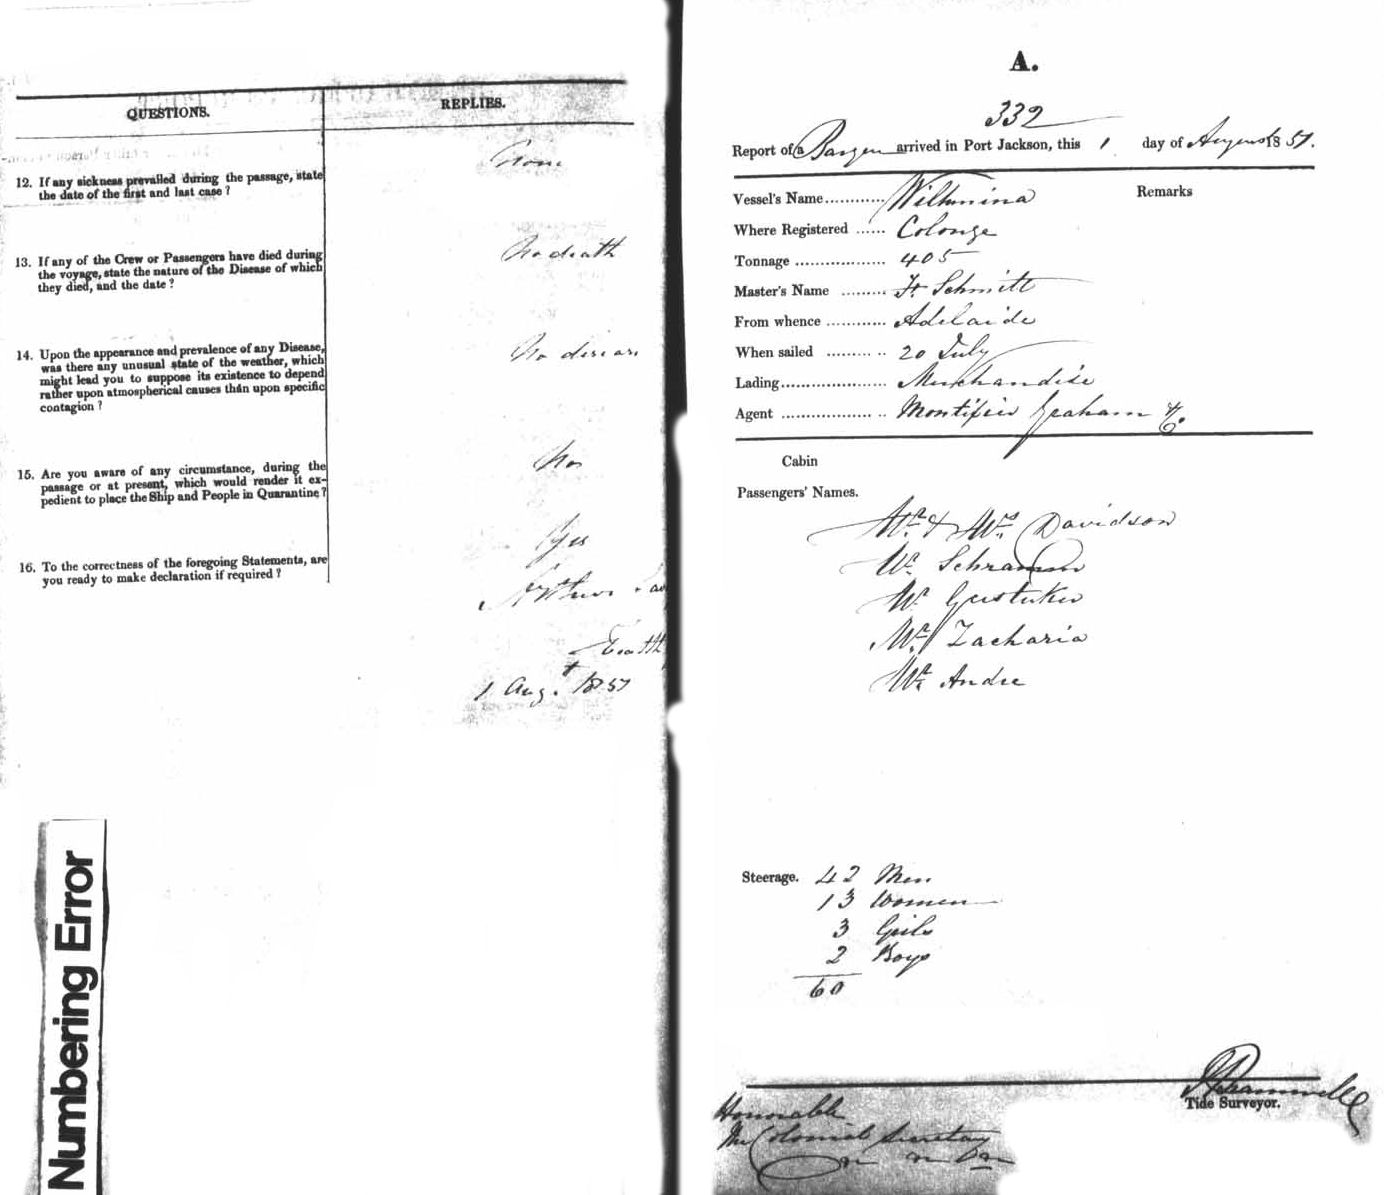 QUESTIONS.
REPLIES.
12. If any sickness prevailed during the passage, state
the date of the first and last case ?
None
13. If any of the Crew or Passengers have died during
the voyage, state the nature of the Disease of which
they died, and the date ?
No death
14. Upon the appearance and prevalence of any Disease,
was there any unusual state of the weather, which
might lead you to suppose its existence to depend
rather upon atmospherical causes than upon specific
contagion ?
No diseas
15. Are you aware of any circumstance, during the
passage or at present, which would render it ex-
pedient to place the Ship and People in Quarantine ?
No
16. To the correctness of the foregoing Statements, are
you ready to make declaration if required ?
Yes
1 Augt 1857
Numbering Error
A.
332
Report of a arrived in Port Jackson, this 1 day of August 1857.
Vessel's Name............ Wilhmina
Remarks
Where Registered ...... Colonge
Tonnage .................. 405
Master's Name ......... Schmitt
From whence ............ Adelaide
When sailed ............ 20 July
Lading...................... Merchandise
Agent ...................... Montifiri Graham & Co.
Cabin
Passengers' Names.
Mr & Mrs Davidson
Mr Schramm
Mr
Mr Zacharia
Mr Andre
Steerage. 42 Men
13 Women
3 Girls
2 Boys
60
Tide Surveyor.
Honorable
The Colonial Secretary